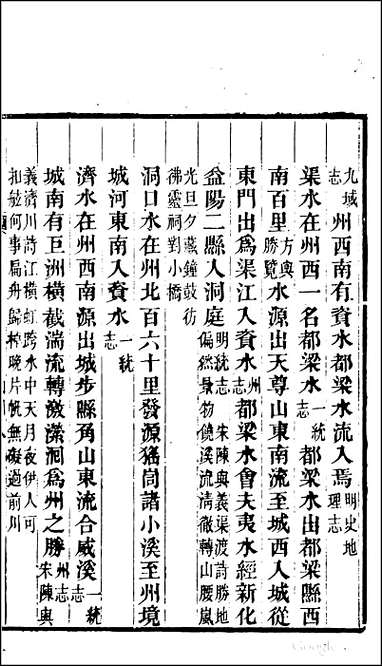 九域志州西南有資水都梁水流入焉明史地理志
渠水在州西一名都梁水一統志都梁水出都梁縣西
南百里方輿勝覽水源出天尊山東南流至城西入城從
東門出爲渠江入資水州志都梁水會夫夷水經新化
益陽二縣入洞庭明統志宋陳與義渠渡詩勝地偏然景物饒溪流淸徹轉山腰嵐
光旦夕藏鐘鼓彷彿靈祠對小橋
洞口水在州北百六十里發源猺峝諸小溪至州境
城河東南入資水一統志
濟水在州西南源出城步縣角山東流合威溪一統志
城南有巨洲橫截湍流轉激瀠洄爲州之勝州志宋陳與
義濟川詩江橫虹跨水中天月夜伊人可扣舷何事扁舟歸棹晚片帆無礙過前川